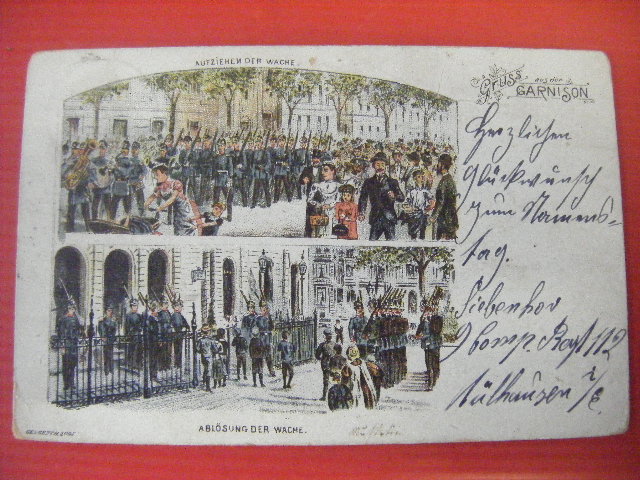 AUFZIEHEN DER WACHE.
Gruss aus der
GARNISON
Herzlichen
Glückwunsch
zum Namens-
tag.
9 Comp. Regt 112
Mülhausen i/E
ABLÖSUNG DER WACHE.